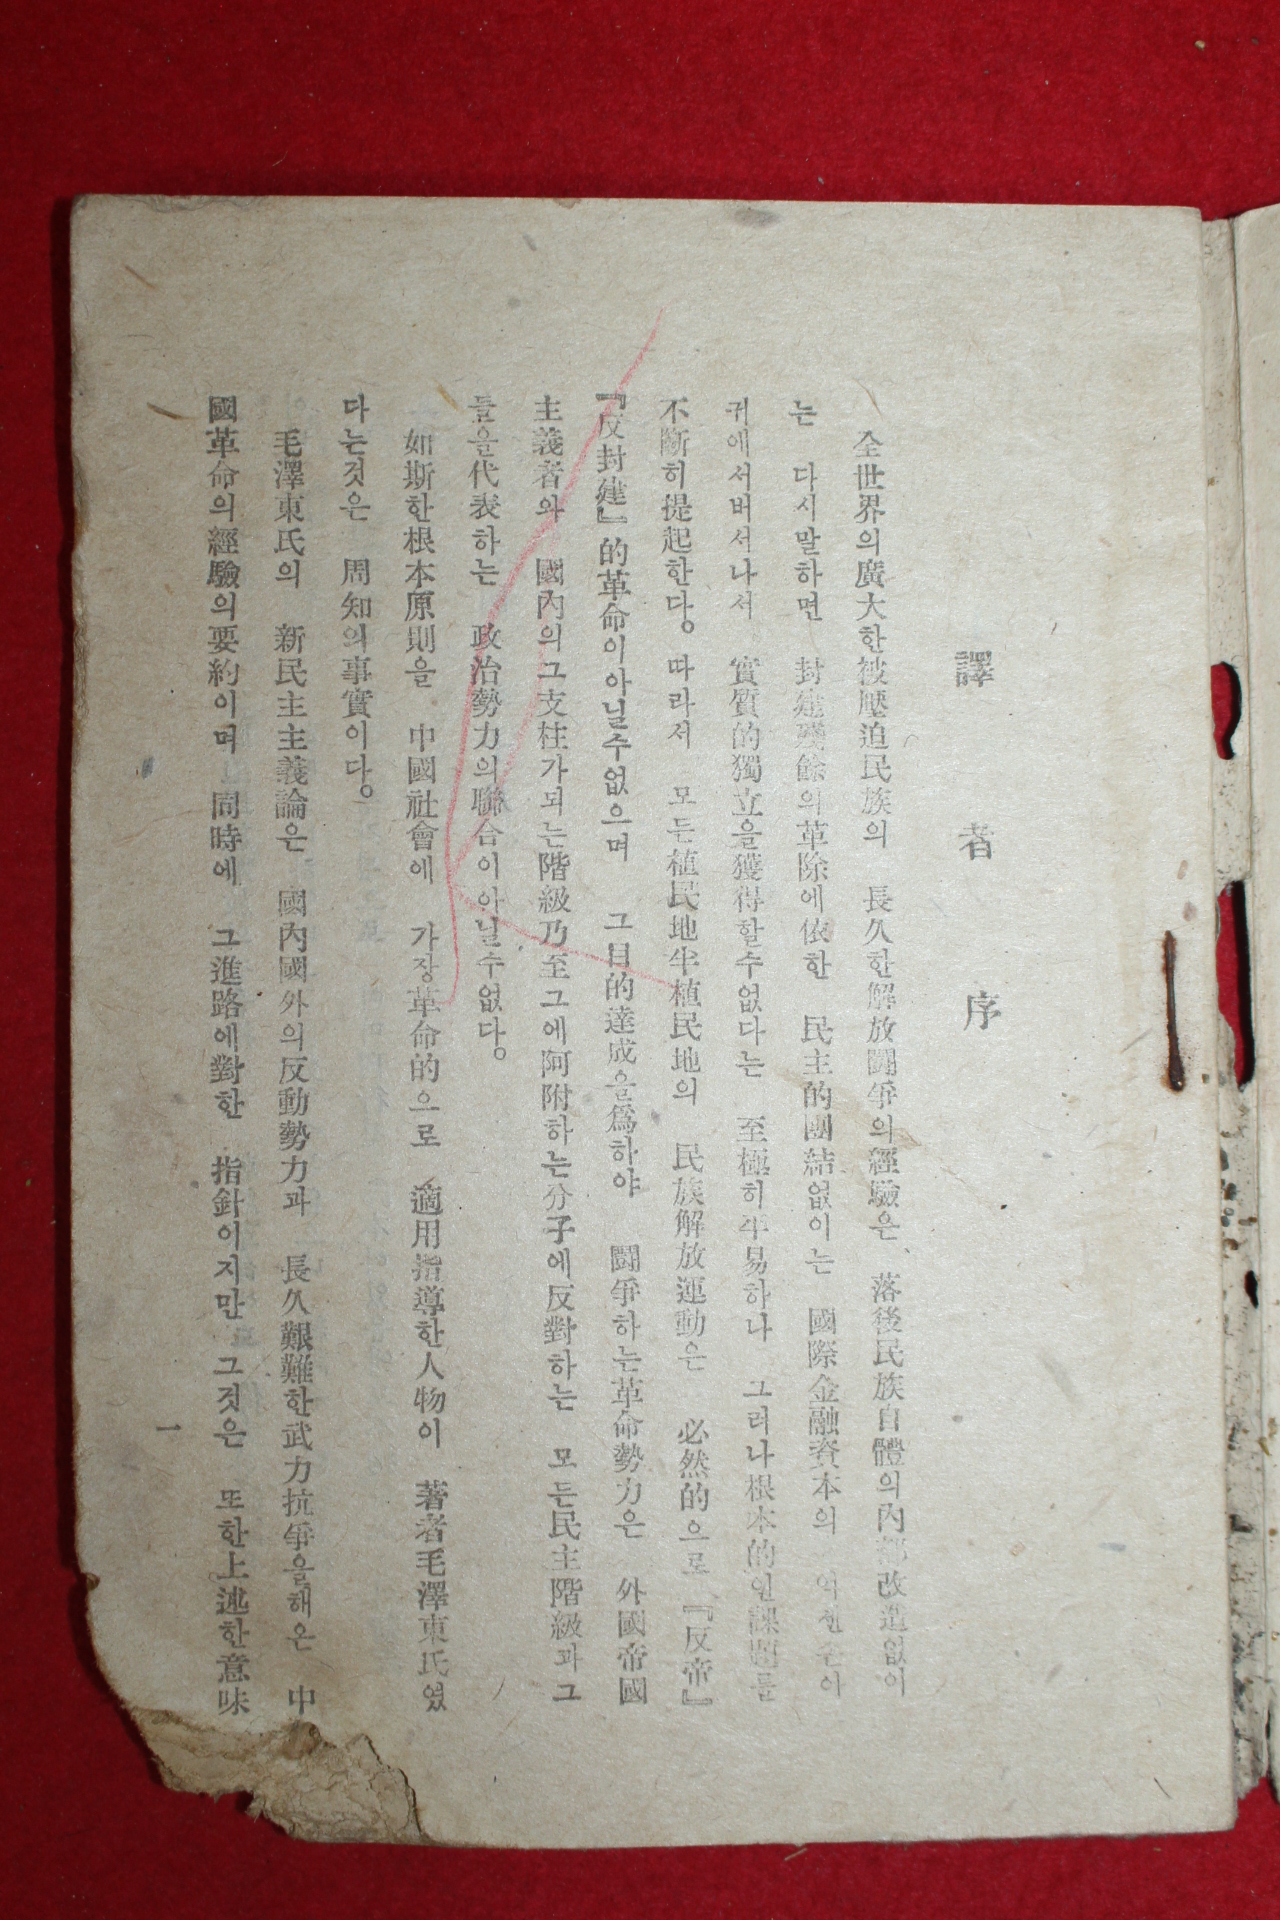 譯者序
全世界의廣大한被壓迫民族의 長久한解放鬪爭의經驗은、落後民族自體의內部改造없이
는 다시말하면 封建殘餘의革除에依한 民主的團結없이는 國際金融資本의 억센손아
귀에서버서나서 實質的獨立을獲得할수없다는 至極히平易하나 그러나根本的인課題를
不斷히提起한다。따라서 모든植民地半植民地의 民族解放運動은 必然的으로『反帝』
『反封建』的革命이아닐수없으며 그目的達成을爲하야 鬪爭하는革命勢力은 外國帝國
主義者와 國內의그支柱가되는階級乃至그에阿附하는分子에反對하는 모든民主階級과그
들을代表하는 政治勢力의聯合이아닐수없다。
如斯한根本原則을 中國社會에 가장革命的으로 適用指導한人物이 著者毛澤東氏였
다는것은 周知의事實이다。
毛澤東氏의 新民主主義論은 國內國外의反動勢力과 長久艱難한武力抗爭을해온 中
國革命의經驗의要約이며 同時에 그進路에對한 指針이지만 그것은 또한上述한意味
一